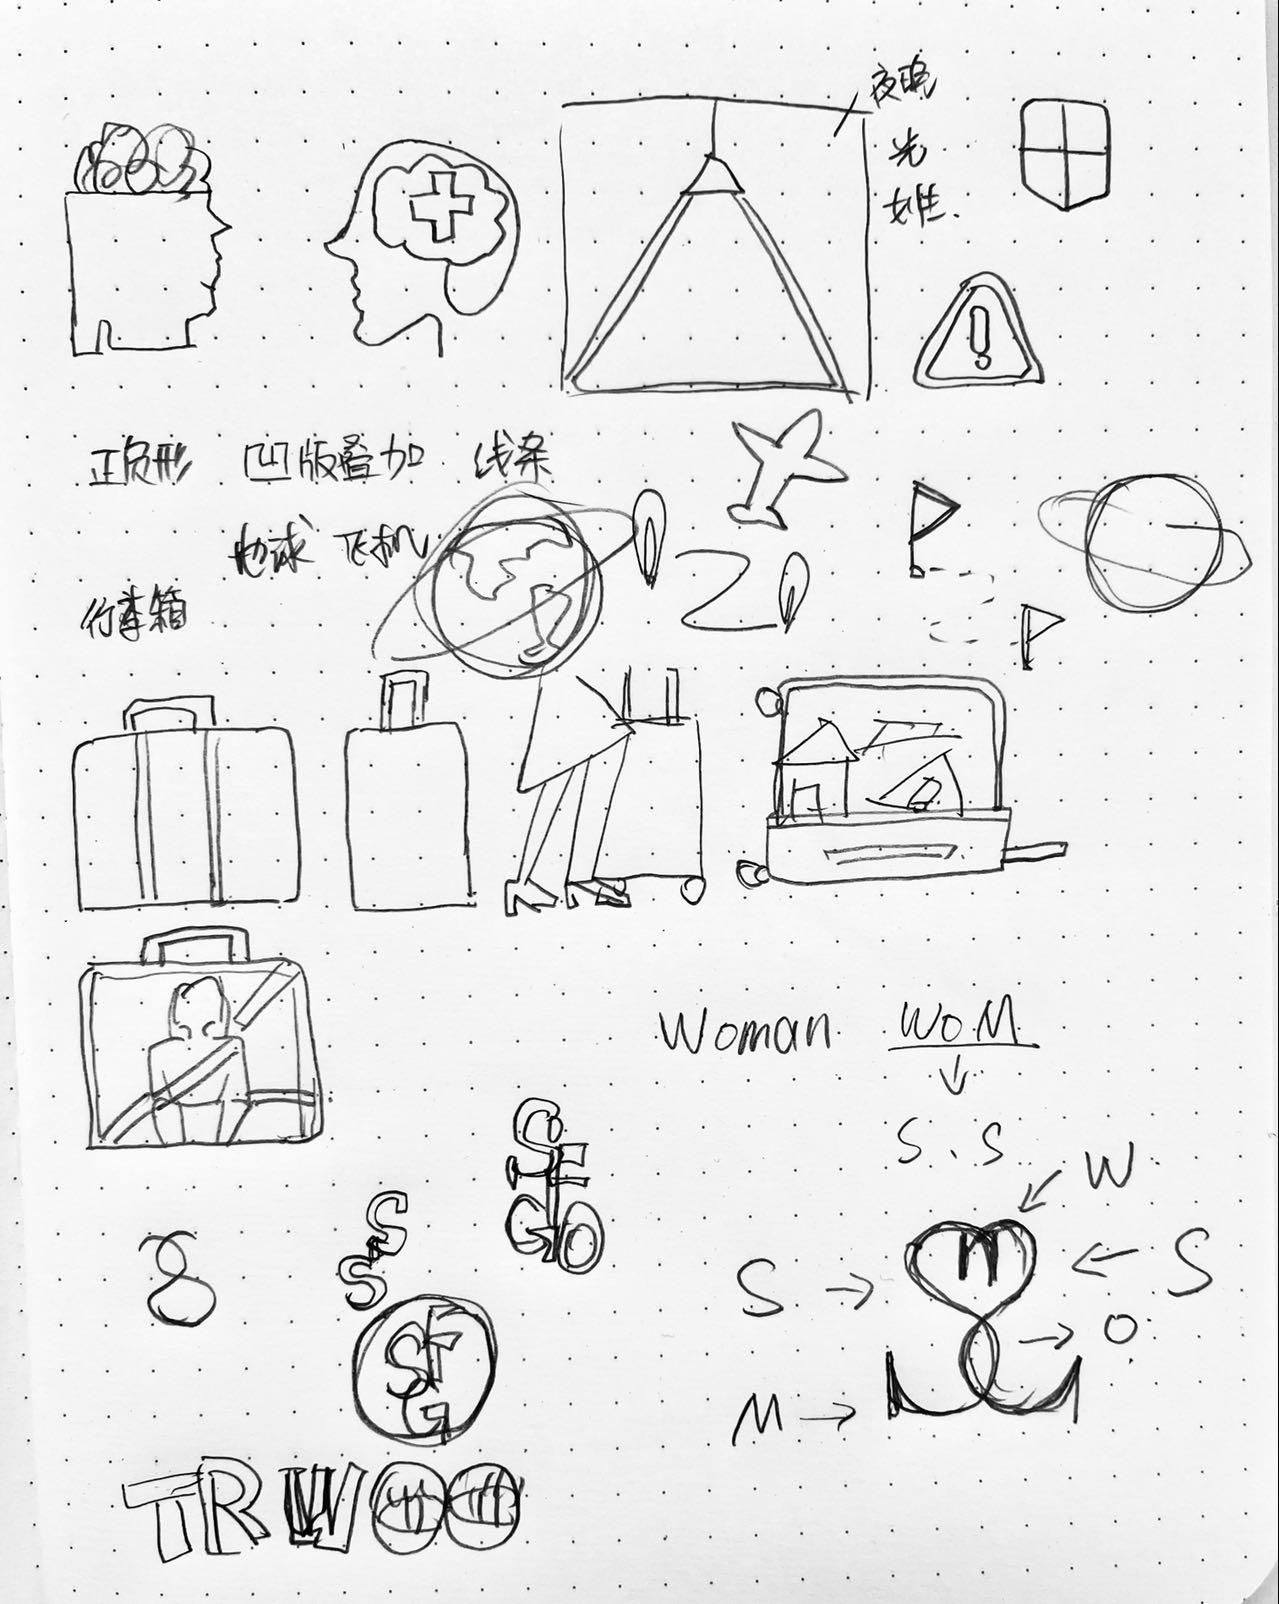 夜晚
光
正负形 凹版叠加 线条
地球 飞机
行李箱
Woman WoM
S . S
W
S S
O
M
S
F
G O
S
S
S F
G
TRW